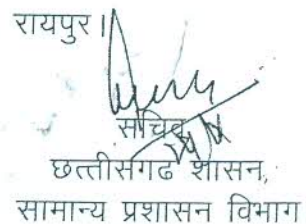 रायपुर।
सचिव
छत्तीसगढ शासन,
सामान्य प्रशासन विभाग